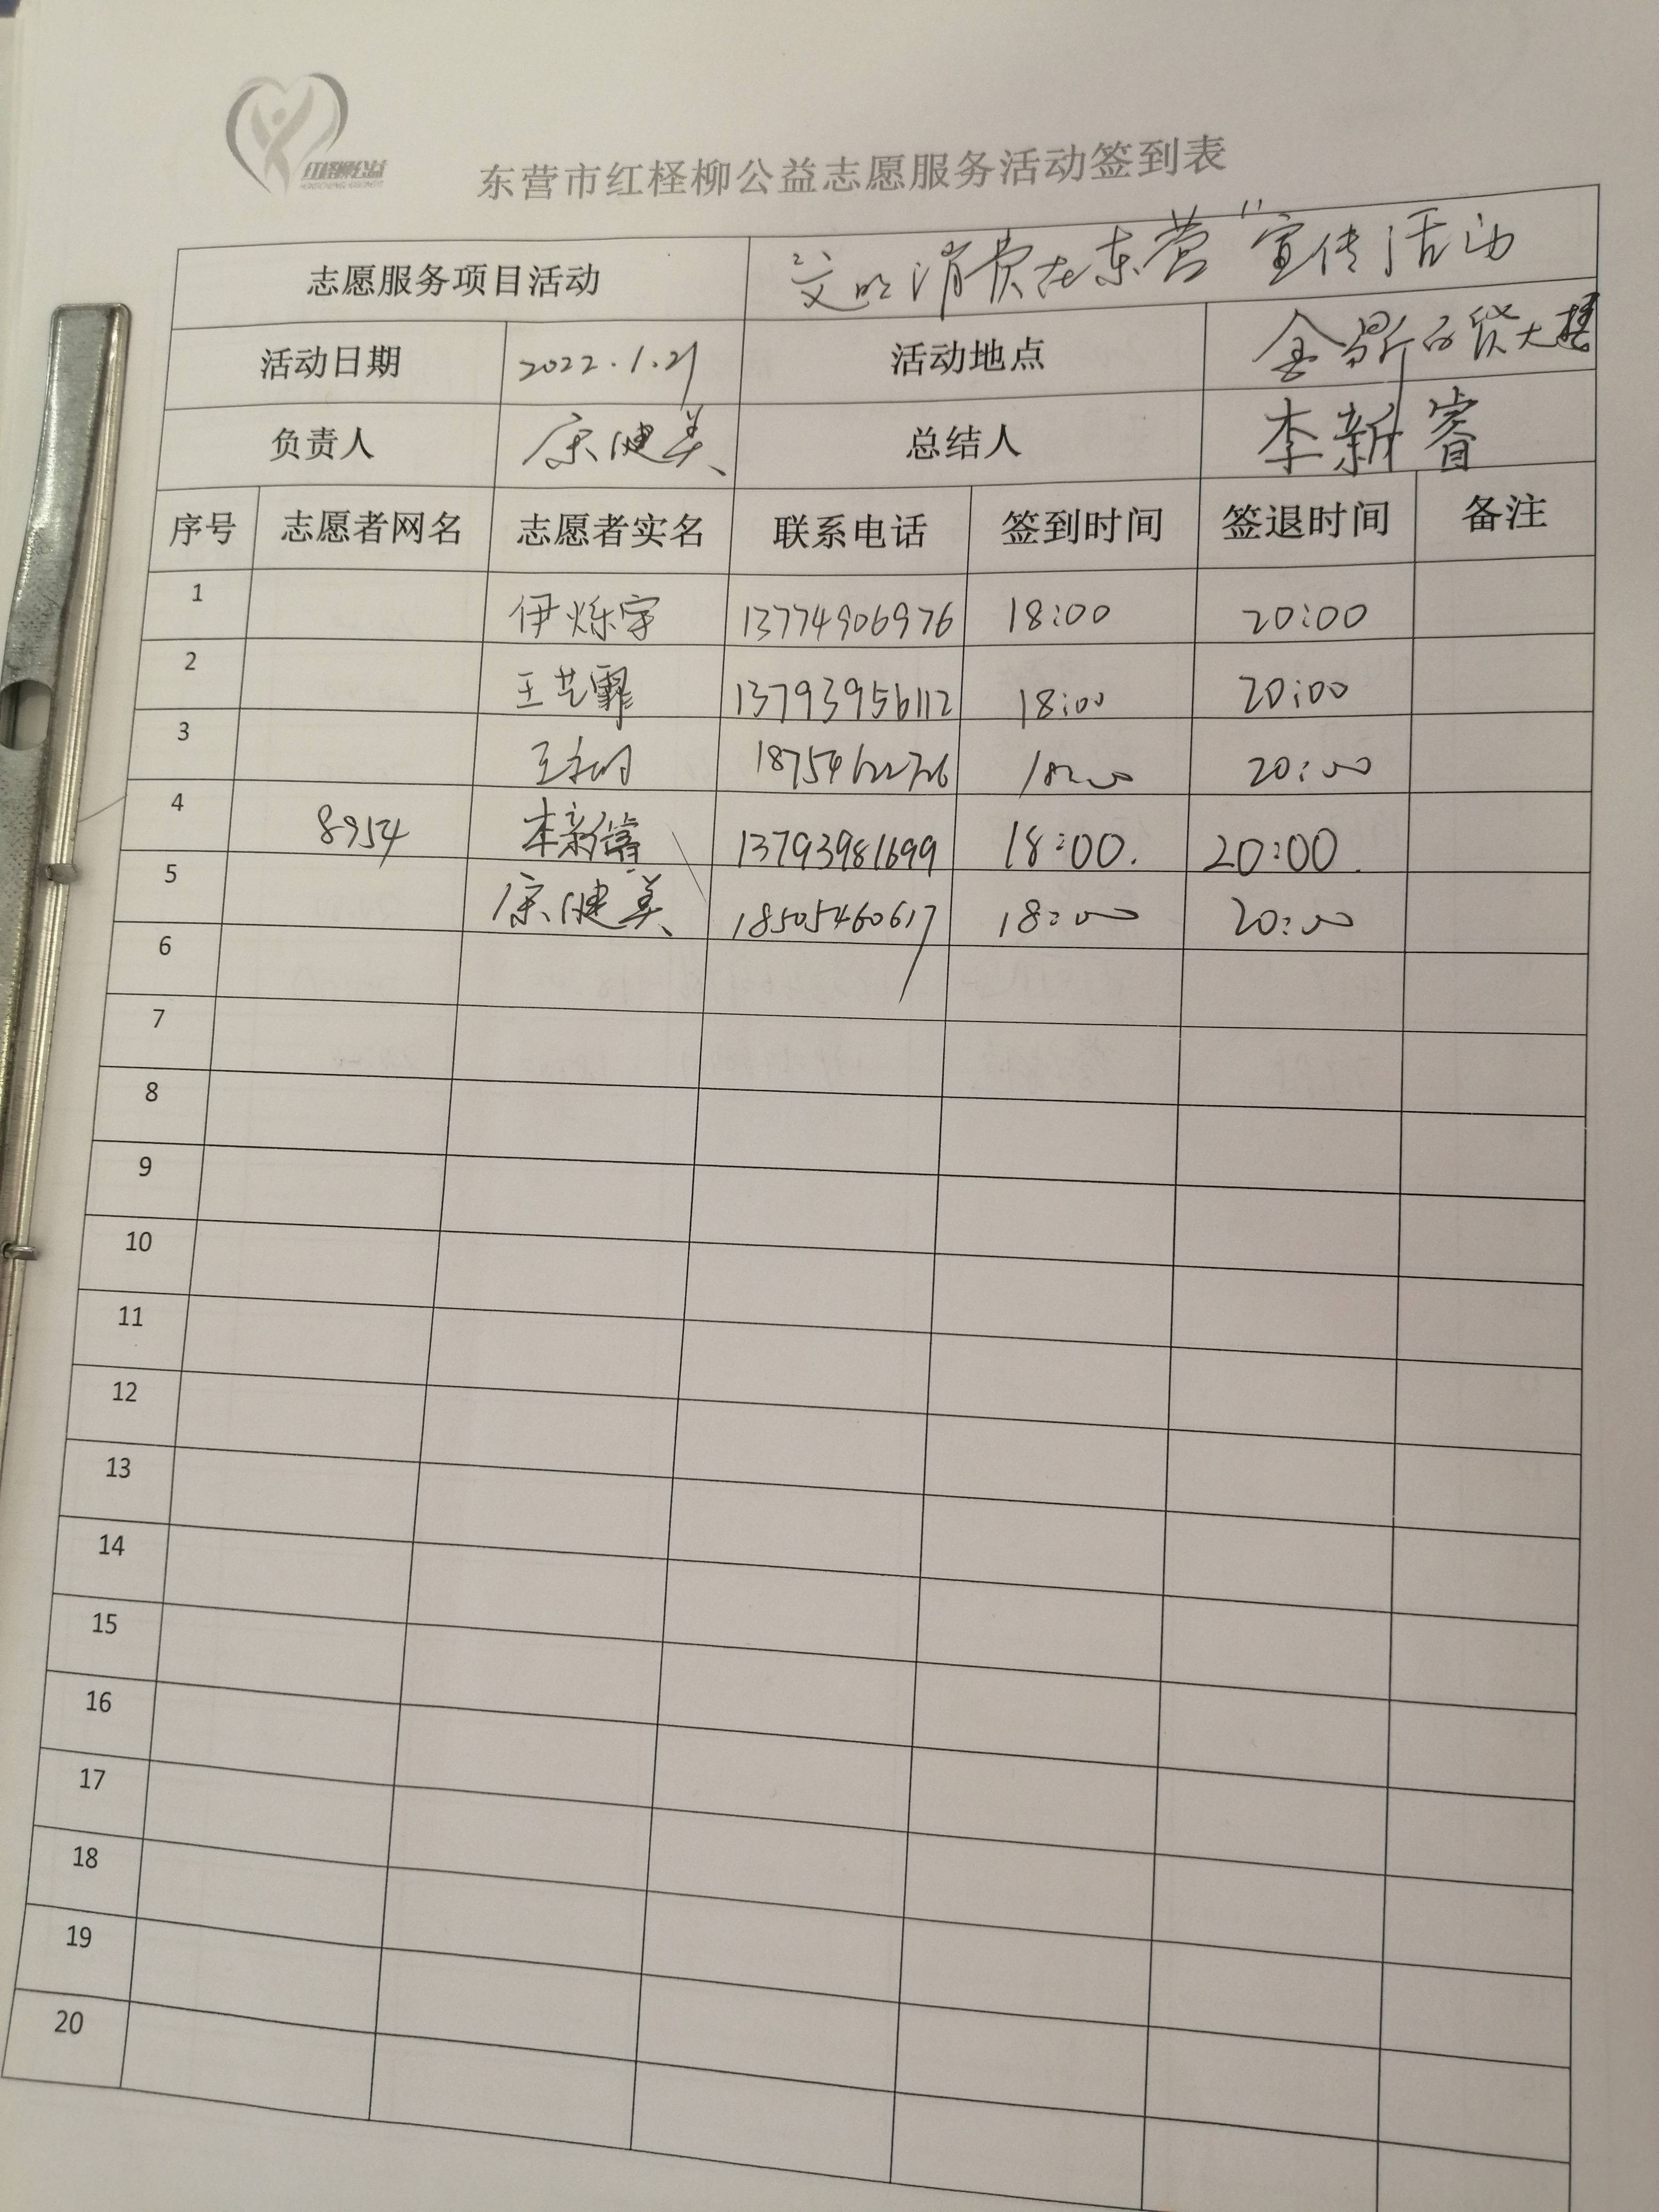 红柽柳公益
东营市红柽柳公益志愿服务活动签到表
志愿服务项目活动 “文明消费在东营”宣传活动
活动日期 2022.1.21 活动地点 金鼎百货大楼
负责人 康健美 总结人 李新睿
序号 志愿者网名 志愿者实名 联系电话 签到时间 签退时间 备注
1 伊烁宇 13774906976 18:00 20:00
2 王艺霏 13793956112 18:00 20:00
3 18:00 20:00
4 8954 李新睿 13793981699 18:00. 20:00.
5 康健美 18505460617 18:00 20:00
6
7
8
9
10
11
12
13
14
15
16
17
18
19
20